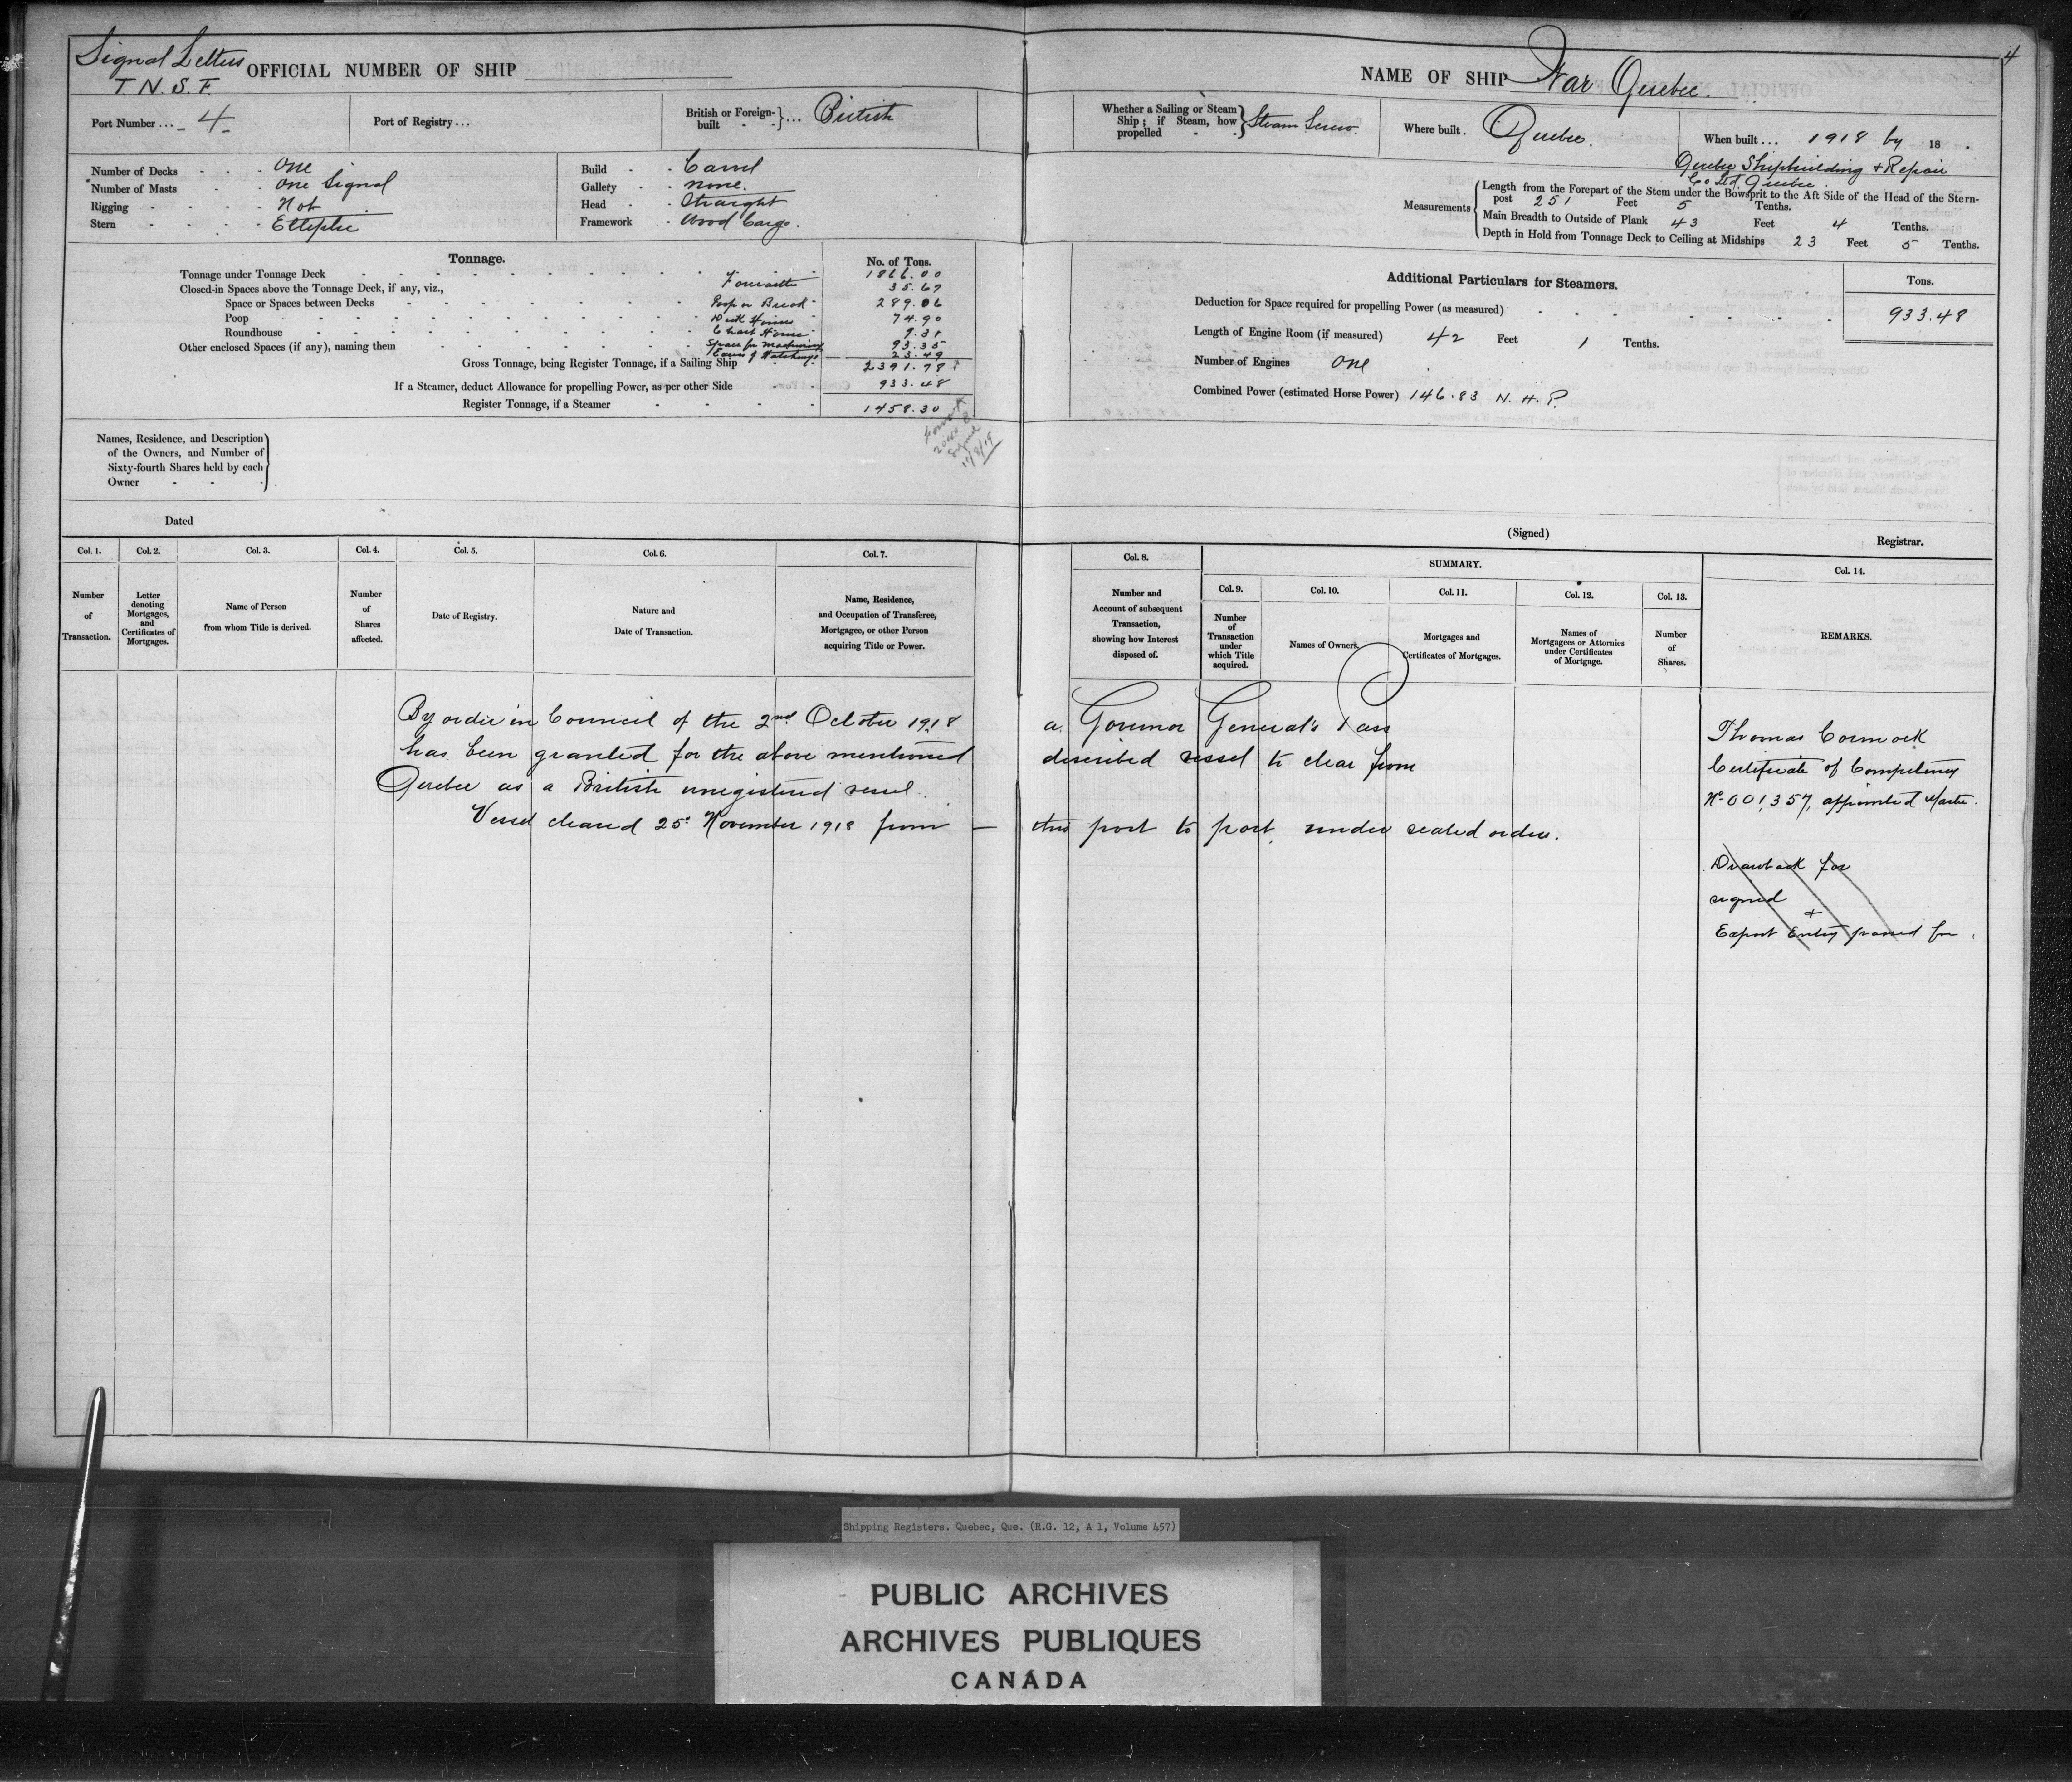 Signal Letters
T. N. S. F.
OFFICIAL NUMBER OF SHIP
Port Number ... 4
Port of Registry ...
British or Foreign-built ... British
Number of Decks - - - One
Number of Masts - - One Signal
Rigging - - - - Not
Stern - - - - Elliptic
Build - - Carvel
Gallery - - none.
Head - - Straight
Framework - Wood Cargo.
Tonnage.
No. of Tons.
Tonnage under Tonnage Deck 1866.00
Closed-in Spaces above the Tonnage Deck, if any, viz., 35.67
Space or Spaces between Decks Poop or Break 289.06
Poop Deck Houses 74.90
Roundhouse Chart House 9.31
Other enclosed Spaces (if any), naming them Space for machinery 93.35
Excess of Hatchways 23.49
Gross Tonnage, being Register Tonnage, if a Sailing Ship 2391.78
If a Steamer, deduct Allowance for propelling Power, as per other Side 933.48
Register Tonnage, if a Steamer 1458.30
Names, Residence, and Description of the Owners, and Number of Sixty-fourth Shares held by each Owner
Dated
Col. 1.
Number of Transaction.
Col. 2.
Letter denoting Mortgages, and Certificates of Mortgages.
Col. 3.
Name of Person from whom Title is derived.
Col. 4.
Number of Shares affected.
Col. 5.
Date of Registry.
Col. 6.
Nature and Date of Transaction.
Col. 7.
Name, Residence, and Occupation of Transferee, Mortgagee, or other Person acquiring Title or Power.
4
NAME OF SHIP War Quebec.
Whether a Sailing or Steam Ship; if Steam, how propelled Steam Screw.
Where built. Quebec.
When built ... 1918 by 18 .
Quebec Shipbuilding & Repair
Co Ltd Quebec.
Measurements
Length from the Forepart of the Stem under the Bowsprit to the Aft Side of the Head of the Stern-
post 251 Feet 5 Tenths.
Main Breadth to Outside of Plank 43 Feet 4 Tenths.
Depth in Hold from Tonnage Deck to Ceiling at Midships 23 Feet 5 Tenths.
Additional Particulars for Steamers.
Tons.
Deduction for Space required for propelling Power (as measured) 933.48
Length of Engine Room (if measured) 42 Feet 1 Tenths.
Number of Engines One
Combined Power (estimated Horse Power) 146.83 N. H. P.
(Signed)
Registrar.
Col. 8.
Number and Account of subsequent Transaction, showing how Interest disposed of.
SUMMARY.
Col. 9.
Number of Transaction under which Title acquired.
Col. 10.
Names of Owners.
Col. 11.
Mortgages and Certificates of Mortgages.
Col. 12.
Names of Mortgagees or Attornies under Certificates of Mortgage.
Col. 13.
Number of Shares.
Col. 14.
REMARKS.
By order in Council of the 2nd October 1918 a Governor General's Pass
has been granted for the above mentioned described vessel to clear from
Quebec as a British unregistered vessel.
Vessel cleared 25th November 1918 from — this port to port under sealed orders.
Thomas Cormack
Certificate of Competency
No 001,357, appointed Master.
Drawback for
signed
&
Export Entry passed for
Shipping Registers. Quebec, Que. (R.G. 12, A 1, Volume 457)
PUBLIC ARCHIVES
ARCHIVES PUBLIQUES
CANADA